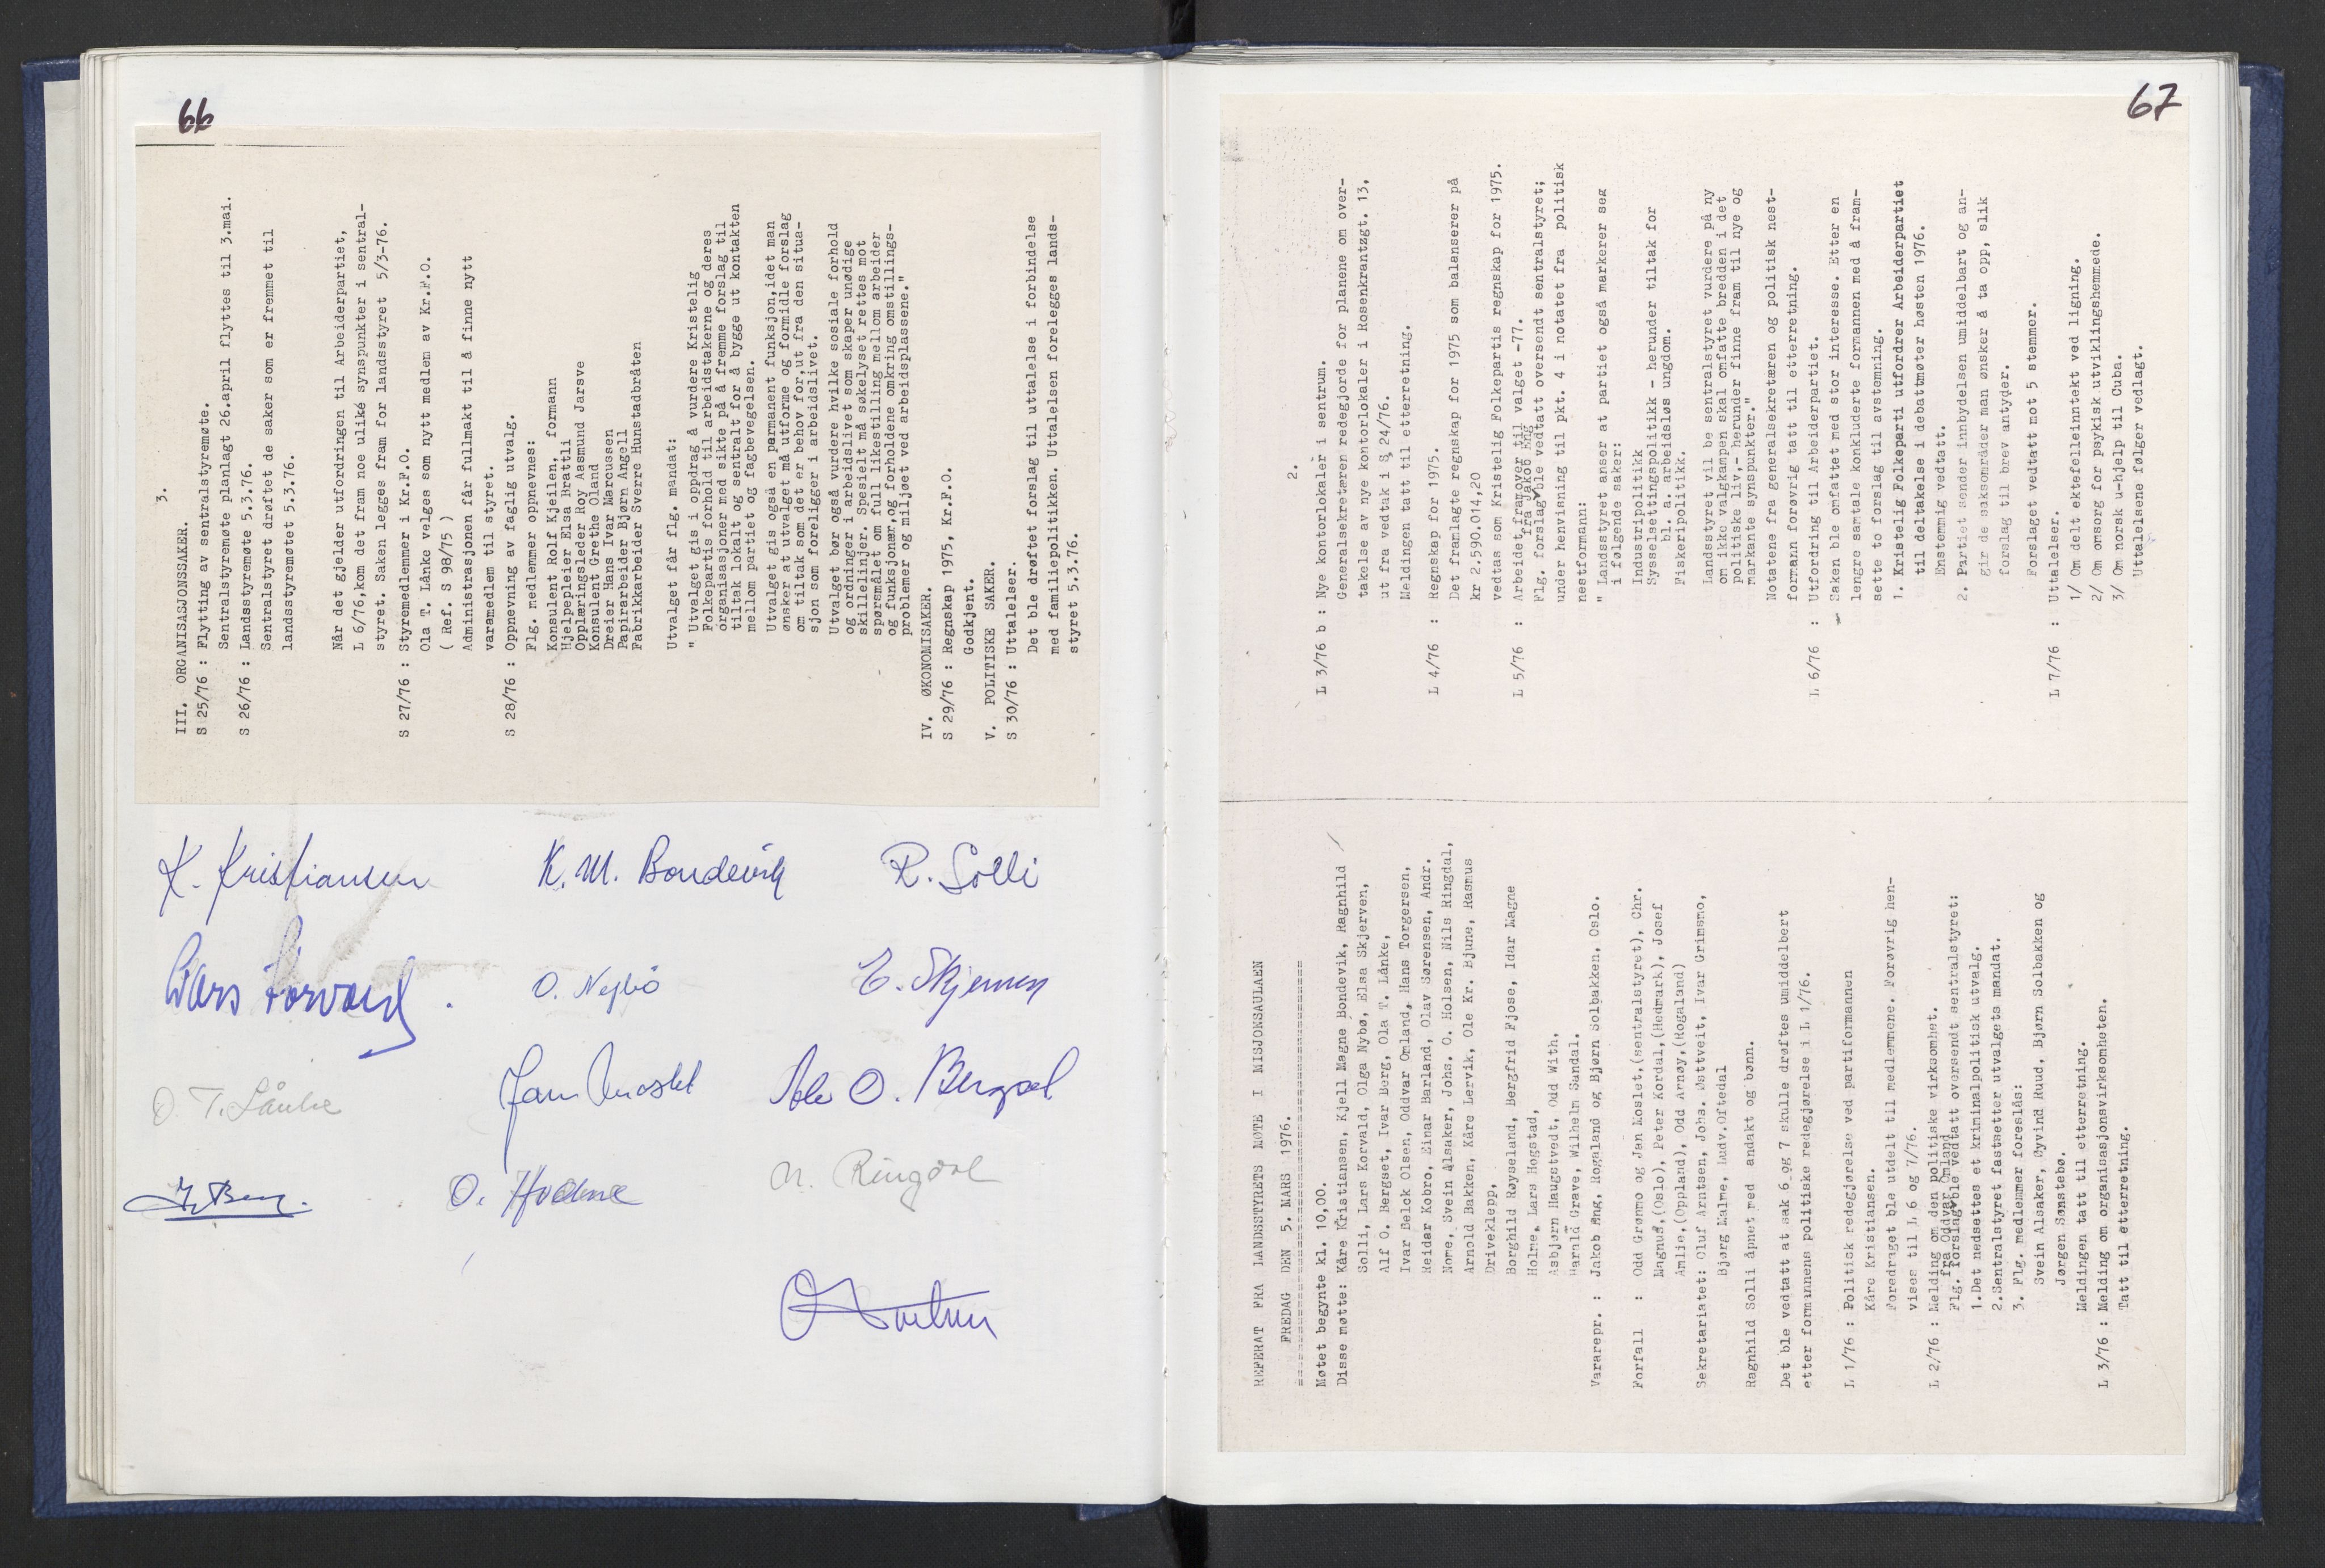 66
3.
III. ORGANISASJONSSAKER.
S 25/76 : Flytting av sentralstyremøte.
Sentralstyremøte planlagt 26.april flyttes til 3.mai.
S 26/76 : Landsstyremøte 5.3.76.
Sentralstyret drøftet de saker som er fremmet til
landsstyremøtet 5.3.76.
Når det gjelder utfordringen til Arbeiderpartiet,
L 6/76,kom det fram noe uliké synspunkter i sentral-
styret. Saken legges fram for landsstyret 5/3-76.
S 27/76 : Styremedlemmer i Kr.F.O.
Ola T. Lånke velges som nytt medlem av Kr.F.O.
( Ref. S 98/75 )
Administrasjonen får fullmakt til å finne nytt
varamedlem til styret.
S 28/76 : Oppnevning av faglig utvalg.
Flg. medlemmer oppnevnes:
Konsulent Rolf Kjeilen, formann
Hjelpepleier Elsa Brattli
Opplæringsleder Roy Aasmund Jarsve
Konsulent Grethe Oland
Dreier Hans Ivar Marcussen
Papirarbeider Bjørn Angell
Fabrikkarbeider Sverre Hunstadbråten
Utvalget får flg. mandat:
" Utvalget gis i oppdrag å vurdere Kristelig
Folkepartis forhold til arbeidstakerne og deres
organisasjoner med sikte på å fremme forslag til
tiltak lokalt og sentralt for å bygge ut kontakten
mellom partiet og fagbevegelsen.
Utvalget gis også en permanent funksjon,idet man
ønsker at utvalget må utforme og formidle forslag
om tiltak som det er behov for,ut fra den situa-
sjon som foreligger i arbeidslivet.
Utvalget bør også vurdere hvilke sosiale forhold
og ordninger i arbeidslivet som skaper unødige
skillelinjer. Spesielt må søkelyset rettes mot
spørsmålet om full likestilling mellom arbeider
og funksjonær,og forholdene omkring omstillings-
problemer og miljøet ved arbeidsplassene."
IV. ØKONOMISAKER.
S 29/76 : Regnskap 1975, Kr.F.O.
Godkjent.
V. POLITISKE SAKER.
S 30/76 : Uttalelser.
Det ble drøftet forslag til uttalelse i forbindelse
med familiepolitikken. Uttalelsen forelegges lands-
styret 5.3.76.
K. Kristiansen K. M. Bondevik R. Solli
Lars Korvald. O. Nybø E. Skjerven
O. T. Lånke Alf O. Bergset
I. Berg. N. Ringdal
67
REFERAT FRA LANDSSTYRETS MØTE I MISJONSAULAEN
FREDAG DEN 5. MARS 1976.
Møtet begynte kl. 10,00.
Disse møtte: Kåre Kristiansen, Kjell Magne Bondevik, Ragnhild
Solli, Lars Korvald, Olga Nybø, Elsa Skjerven,
Alf O. Bergset, Ivar Berg, Ola T. Lånke,
Ivar Belck Olsen, Oddvar Omland, Hans Torgersen,
Reidar Kobro, Einar Barland, Olav Sørensen, Andr.
Nome, Svein Alsaker, Johs. O. Holsen, Nils Ringdal,
Arnold Bakken, Kåre Lervik, Ole Kr. Bjune, Rasmus
Driveklepp,
Borghild Røyseland, Bergfrid Fjose, Idar Magne
Holme, Lars Hogstad,
Asbjørn Haugstvedt, Odd With,
Harald Grave, Wilhelm Sandal.
Vararepr. : Jakob Eng, Rogaland og Bjørn Solbakken, Oslo.
Forfall : Odd Grønmo og Jan Moslet,(sentralstyret), Chr.
Magnus,(Oslo), Peter Kordal,(Hedmark), Josef
Amlie,(Oppland), Odd Arnøy,(Rogaland)
Sekretariatet: Oluf Arntsen, Johs. Østtveit, Ivar Grimsmo,
Bjørg Malme, Ludv.Oftedal
Ragnhild Solli åpnet med andakt og bønn.
Det ble vedtatt at sak 6 og 7 skulle drøftes umiddelbert
etter formannens politiske redegjørelse i L 1/76.
L 1/76 : Politisk redegjørelse ved partiformannen
Kåre Kristiansen.
Foredraget ble utdelt til medlemmene. Forøvrig hen-
vises til L 6 og 7/76.
L 2/76 : Melding om den politiske virksomhet.
fra Oddvar Omland
Flg. forslag ble vedtatt oversendt sentralstyret:
1.Det nedsettes et kriminalpolitisk utvalg.
2.Sentralstyret fastsetter utvalgets mandat.
3. Flg. medlemmer foreslås:
Svein Alsaker, Øyvind Ruud, Bjørn Solbakken og
Jørgen Sønstebø.
Meldingen tatt til etterretning.
L 3/76 : Melding om organisasjonsvirksomheten.
Tatt til etterretning.
2.
L 3/76 b : Nye kontorlokaler i sentrum.
Generalsekretæren redegjorde for planene om over-
takelse av nye kontorlokaler i Rosenkrantzgt. 13,
ut fra vedtak i S 24/76.
Meldingen tatt til etterretning.
L 4/76 : Regnskap for 1975.
Det framlagte regnskap for 1975 som balanserer på
kr 2.590.014,20
vedtas som Kristelig Folkepartis regnskap for 1975.
L 5/76 : Arbeidet framover til valget -77.
fra Jakob Eng
Flg. forslag ble vedtatt oversendt sentralstyret;
under henvisning til pkt. 4 i notatet fra politisk
nestformann:
" Landsstyret anser at partiet også markerer seg
i følgende saker:
Industripolitikk
Sysselsettingspolitikk - herunder tiltak for
bl. a. arbeidsløs ungdom.
Fiskeripolitikk.
Landsstyret vil be sentralstyret vurdere på ny
om ikke valgkampen skal omfatte bredden i det
politiske liv,- herunder finne fram til nye og
markante synspunkter."
Notatene fra generalsekretæren og politisk nest-
formann forøvrig tatt til etterretning.
L 6/76 : Utfordring til Arbeiderpartiet.
Saken ble omfattet med stor interesse. Etter en
lengre samtale konkluderte formannen med å fram-
sette to forslag til avstemning.
1. Kristelig Folkeparti utfordrer Arbeiderpartiet
til deltakelse i debattmøter høsten 1976.
Enstemmig vedtatt.
2. Partiet sender innbydelsen umiddelbart og an-
gir de saksområder man ønsker å ta opp, slik
forslag til brev antyder.
Forslaget vedtatt mot 5 stemmer.
L 7/76 : Uttalelser.
1/ Om delt ektefelleinntekt ved ligning.
2/ Om omsorg for psykisk utviklingshemmede.
3/ Om norsk u-hjelp til Cuba.
Uttalelsene følger vedlagt.